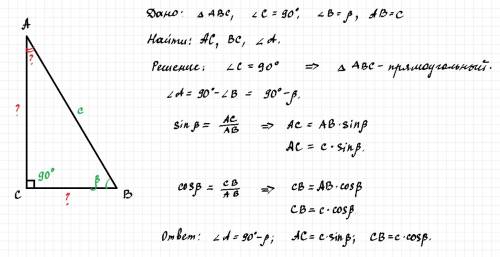 Дано: △ ABC, ∠C = 90°, ∠B = β, AB = c
Найти: AC, BC, ∠A.
Решение: ∠C = 90° ⇒ △ ABC - прямоугольный.
∠A = 90° - ∠B = 90° - β.
sinβ = AC/AB ⇒ AC = AB · sinβ
AC = c · sinβ.
cosβ = CB/AB ⇒ CB = AB · cosβ
CB = c · cosβ
Ответ: ∠A = 90° - β; AC = c · sinβ; CB = c · cosβ.
A
?
?
c
90°
β
C
?
B